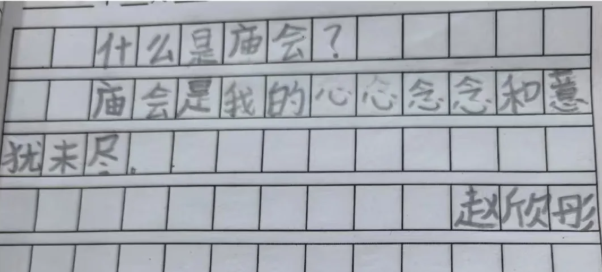 什么是庙会?
庙会是我的心心念念和意
犹未尽.
赵欣彤